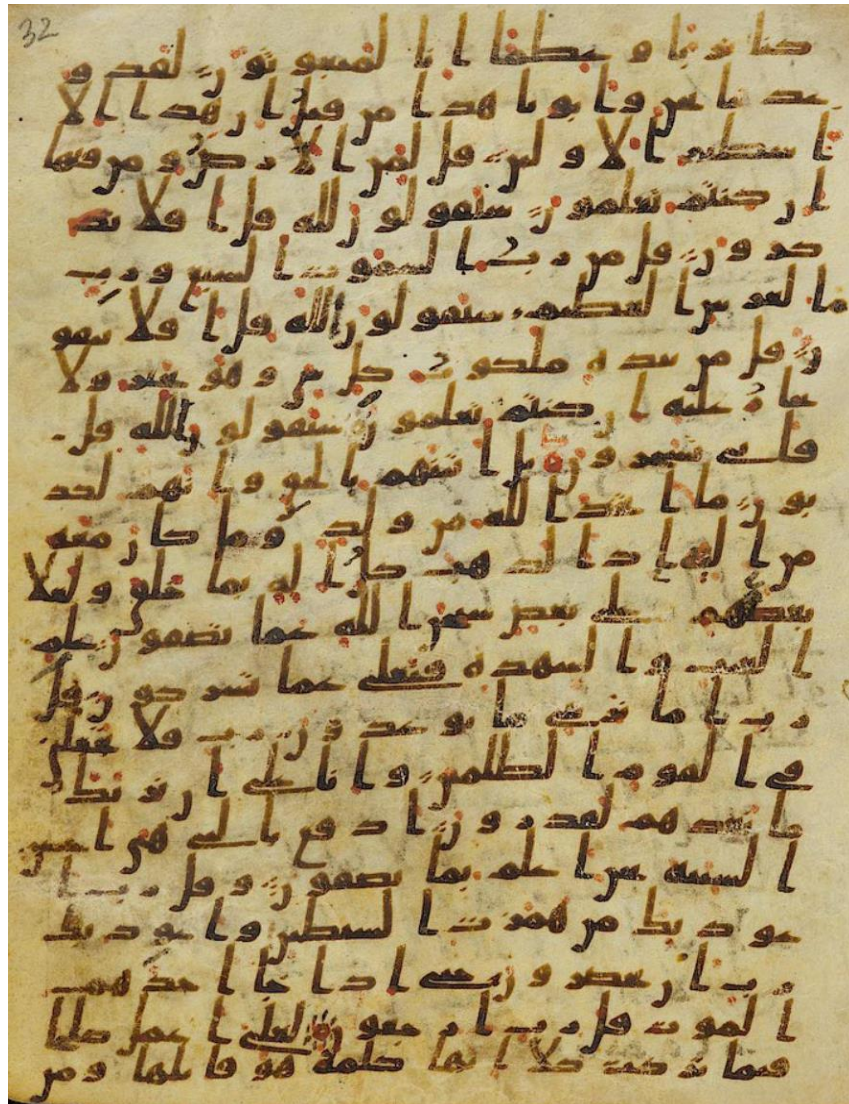 32
كنا ترابا و عظما انا لمبعوثون لقد و
عدنا نحن وابونا هذا من قبل ان هذا الا
اسطير الاولين قل لمن الارض ومن فيها
ان كنتم تعلمون سيقولون لله قل افلا تذ
كرون قل من رب السموت السبع ورب
العرش العظيم سيقولون الله قل افلا تتقو
ن قل من بيده ملكوت كل شى وهو يجير ولا
يجار عليه ان كنتم تعلمون سيقولون الله قل
فانى تسحرون بل اتينهم بالحق وانهم لكذ
بون ما اتخذ الله من ولد وما كان معه
من اله اذا لذهب كل اله بما خلق ولعلا
بعضهم على بعض سبحن الله عما يصفون علم
الغيب والشهدة فتعلى عما يشركون قل
رب اما تريني ما يوعدون رب فلا تجعلني
في القوم الظلمين وانا على ان نريك
ما نعدهم لقدرون ادفع بالتي هي احسن
السيئة نحن اعلم بما يصفون وقل رب ا
عوذ بك من همزت الشيطين واعوذ بك
رب ان يحضرون حتى اذا جا احدهم
الموت قل رب ارجعون لعلى اعمل صلحا
فيما تركت كلا انها كلمة هو قايلها ومن